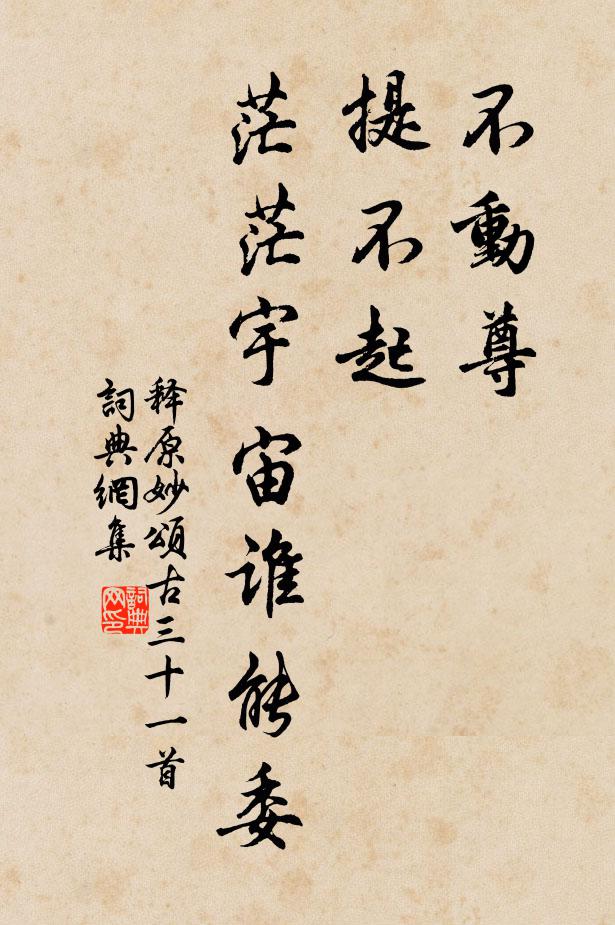 不動尊
提不起
茫茫宇宙誰能委
释原妙頌古三十一首
詞典網集
詞典网印